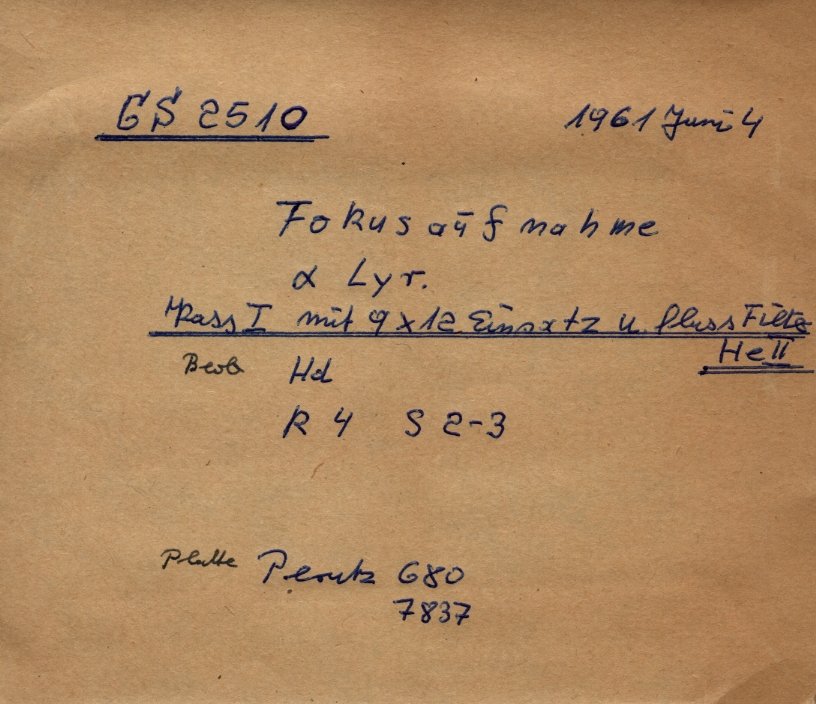 GS 2510 1961 Juni 4
Fokusaufnahme
α Lyr.
Kass I mit 9x12 Einsatz u. plus Filter
He II
Beob Hd
R 4 S 2-3
Platte Perutz 680
7837